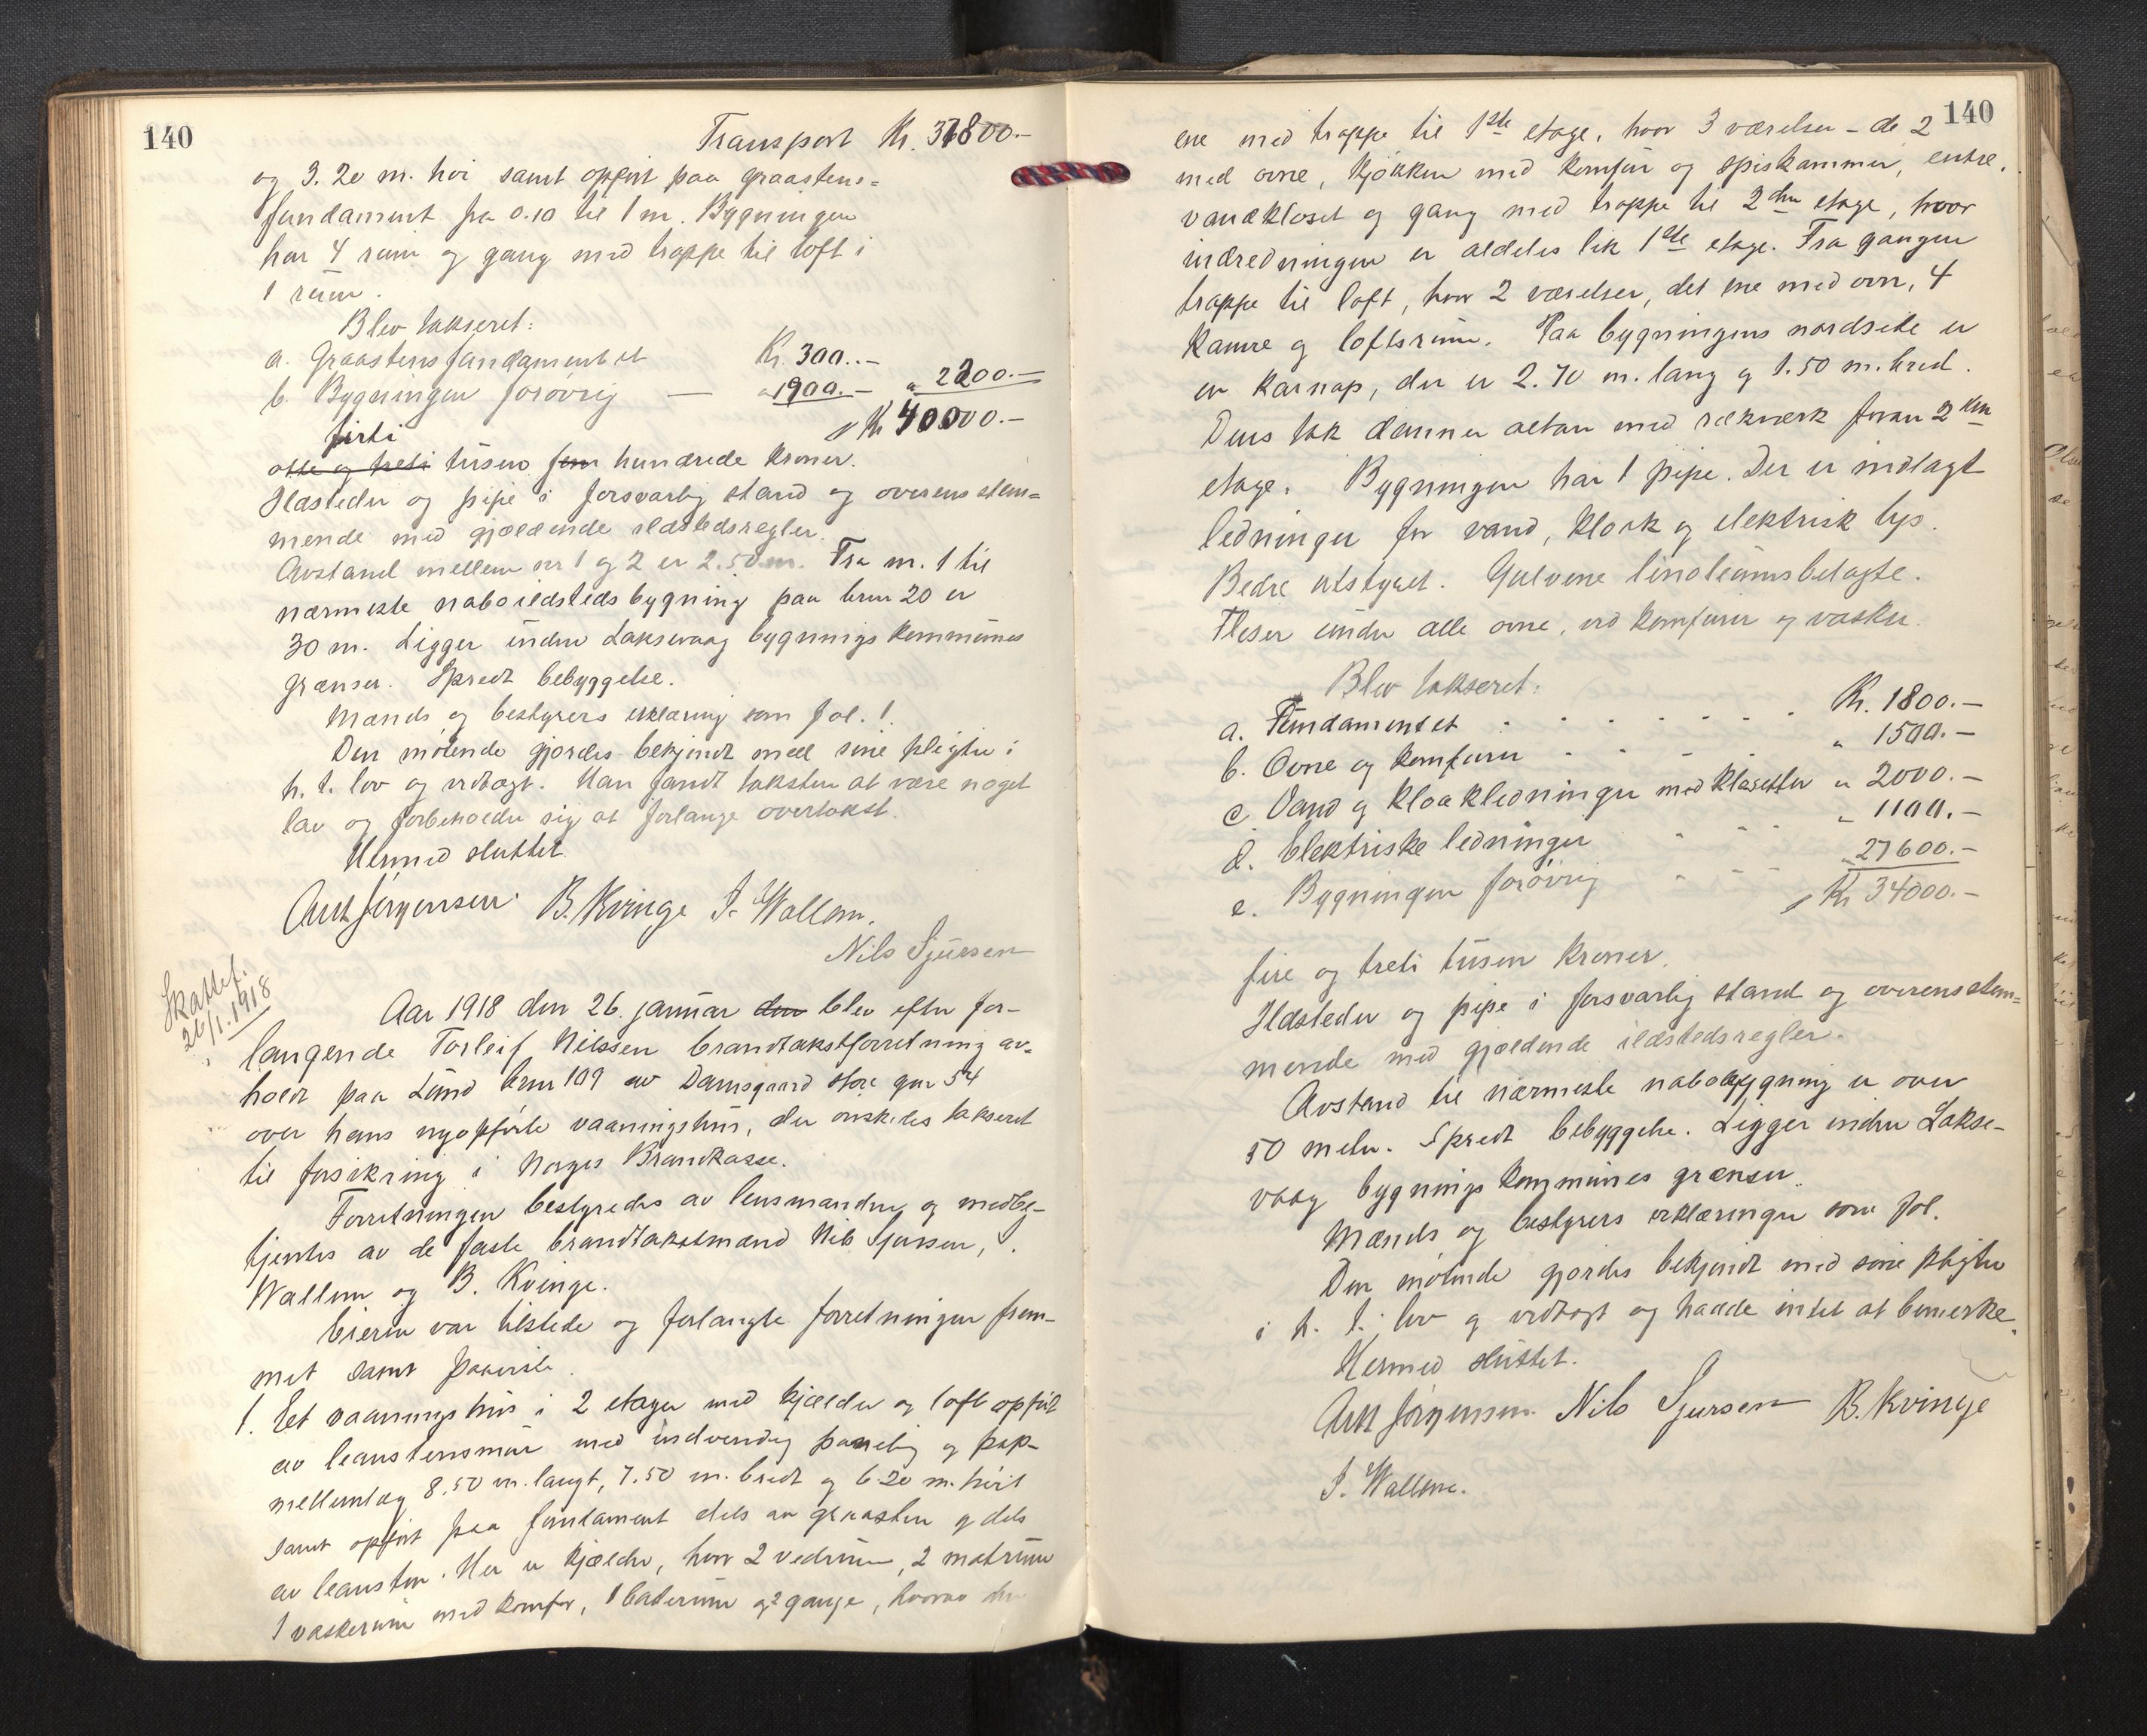 140
Transport Kr. 37800.-
og 3.20 m. høi samt opført paa graastens=
fundament fra 0.10 til 1 m. Bygningen
har 4 rum og gang med trappe til loft i
1 rum.
Blev takseret:
a. Graastensfundamentet Kr. 300.-
b. Bygningen forøvrig — " 1900.- " 2200.-
Kr 40000.-
firti
otte og treti tusen fem hundrede kroner.
Ildsteder og pipe i forsvarlig stand og overensstem=
mende med gjældende ildstedsregler.
Avstand mellem nr 1 og 2 er 2.50 m. Fra nr. 1 til
nærmeste naboildstedsbygning paa brnr 20 er
30 m. Ligger under Laksevaag bygningskommunes
grænser. Spredt bebyggelse.
Mænds og bestyrers erklæring som fol. 1.
Den møtende gjordes bekjendt med sine pligter i
h. t. lov og vedtægt. Han fandt taksten at være noget
lav og forbeholder sig at forlange overtakst.
Hermed sluttet.
Ant Jørgensen. B. Kvinge J. Wallem.
Nils Sjursen
Skattef.
26/1.1918
Aar 1918 den 26. januar den blev efter for-
langende Torleif Nilssen brandtakstforretning av-
holdt paa Lund brnr 109 av Damsgaard store gnr 54
over hans nyopførte vaaningshus, der ønskedes takseret
til forsikring i Norges Brandkasse.
Forretningen bestyredes av lensmanden og medbe-
tjentes av de faste brandtakstmænd Nils Sjursen, J.
Wallem og B. Kvinge.
Eieren var tilstede og forlangte forretningen frem-
met samt paaviste
1. Et vaaningshus i 2 etager med kjælder og loft opført
av leanstensmur med indvendig paneling og pap-
mellemlæg 8.50 m. langt, 7.50 m. bredt og 6.20 m. høit
samt opført paa fundament dels av graasten og dels
av leansten. Her er kjælder, hvor 2 vedrum, 2 matrum
1 vaskerum med komfur, 1 baderum og 2 gange, hvorav den
140
ene med trappe til 1ste etage, hvor 3 værelser - de 2
med ovne, kjøkken med komfur og spiskammer, entre,
vandkloset og gang med trappe til 2den etage, hvor
indredningen er aldeles lik 1ste etage. Fra gangen
trappe til loft, hvor 2 værelser, det ene med ovn, 4
kamre og loftsrum. Paa bygningens nordside er
en karnap, der er 2.70 m. lang og 1.50 m. bred.
Dens tak danner altan med rækværk foran 2den
etage. Bygningen har 1 pipe. Der er indlagt
ledninger for vand, kloak og elektrisk lys.
Bedre utstyret. Gulvene linoleumsbelagte.
Fliser under alle ovne, ved komfurer og vasker.
Blev takseret:
a. Fundamentet . . . . . . . Kr. 1800.-
b. Ovne og komfurer . . . . " 1500.-
c. Vand og kloakledninger med klosetter " 2000.-
d. Elektriske ledninger " " " " 1100.-
e. Bygningen forøvrig " " " " 27600.-
Kr 34000.-
fire og treti tusen kroner.
Ildsteder og pipe i forsvarlig stand og overensstem=
mende med gjældende ildstedsregler.
Avstand til nærmeste nabobygning er over
50 meter. Spredt bebyggelse. Ligger under Lakse-
vaag bygningskommunes grænser.
Mænds og bestyrers erklæringer som fol.
Den møtende gjordes bekjendt med sine pligter
i h. t. lov og vedtægt og hadde intet at bemerke.
Hermed sluttet.
Ant Jørgensen. Nils Sjursen B. Kvinge
J. Wallem.